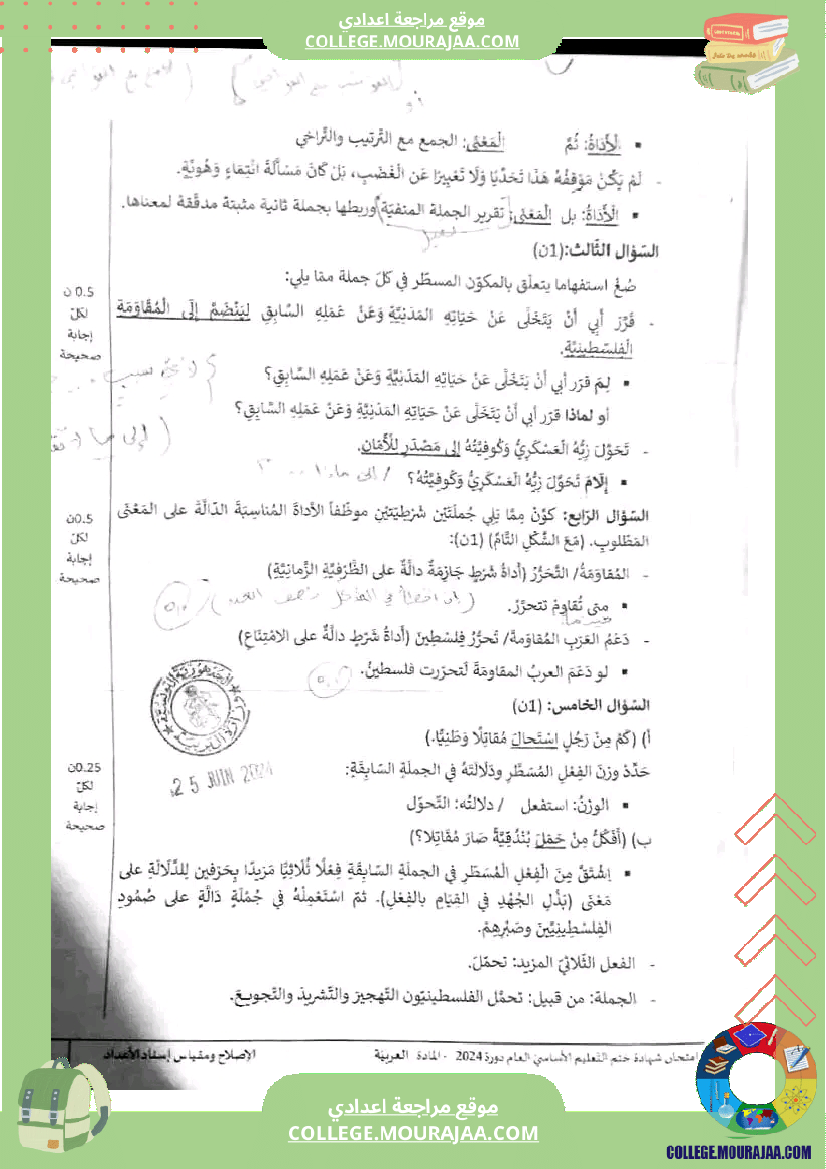 موقع مراجعة اعدادي
COLLEGE.MOURAJAA.COM
▪ الْأَدَاةُ: ثُمَّ الْمَعْنَى: الجمع مع التَّرتيب والتَّراخي
- لَمْ يَكُنْ مَوْقِفُهُ هَذَا تَحَدِّيًا وَلَا تَعْبِيرًا عَنِ الْغَضَبِ، بَلْ كَانَ مَسْأَلَةَ انْتِمَاءٍ وَهُوِيَّةٍ.
▪ الْأَدَاةُ: بل الْمَعْنَى: تقرير الجملة المنفيّة وربطها بجملة ثانية مثبتة مدقّقة لمعناها.
السّؤال الثّالث:(1ن)
صُغْ استفهاما يتعلّق بالمكوّن المسطّر في كلّ جملة ممّا يلي:
0.5 ن
لكلّ
إجابة
صحيحة
- قَرَّرَ أَبِي أَنْ يَتَخَلَّى عَنْ حَيَاتِهِ المَدَنِيَّةِ وَعَنْ عَمَلِهِ السَّابِقِ لِيَنْضَمَّ إِلَى الْمُقَاوَمَةِ
الْفِلَسْطِينِيَّةِ.
▪ لِمَ قرّر أبي أنْ يَتَخَلَّى عَنْ حَيَاتِهِ المَدَنِيَّةِ وَعَنْ عَمَلِهِ السَّابِقِ؟
أو لماذا قرّر أبي أَنْ يَتَخَلَّى عَنْ حَيَاتِهِ المَدَنِيَّةِ وَعَنْ عَمَلِهِ السَّابِقِ؟
- تَحَوَّلَ زِيُّهُ الْعَسْكَرِيُّ وَكُوفِيَّتُهُ إلى مَصْدَرٍ لِلْأَمَانِ.
▪ إِلَامَ تَحَوَّلَ زِيُّهُ الْعَسْكَرِيُّ وَكُوفِيَّتُهُ؟ / إلى ماذا ...
0.5ن
لكلّ
إجابة
صحيحة
السّؤال الرّابع: كَوِّنْ مِمَّا يَلِي جُملَتَيْنِ شَرطِيّتيْنِ موظّفاً الأداةَ المُناسِبَةَ الدّالّةَ على المَعْنَى
المَطْلوبِ. (مَعَ الشَّكْلِ التَّامِّ) (1ن):
- المُقاوَمَةُ/ التَّحَرُّرُ (أَداةُ شَرطٍ جَازِمَةٌ دالّةٌ على الظَّرْفِيَّةِ الزَّمانِيَّةِ)
▪ متى تُقاوِمْ تتحرّرْ.
- دَعْمُ العَرَبِ المُقاوَمةَ/ تَحرُّرُ فِلِسْطِينَ (أَداةُ شَرْطٍ دالّةٌ على الامْتِنَاعِ)
▪ لو دَعَمَ العربُ المقاومَةَ لَتحرّرت فلسطينُ.
السّؤال الخامس: (1ن)
أ) (كَمْ مِنْ رَجُلٍ اسْتَحالَ مُقاتِلًا وَطَنِيًّا.)
25 JUIN 2024
0.25ن
لكلّ
إجابة
صحيحة
حَدِّدْ وزنَ الفِعْلِ المُسَطَّرِ ودَلَالَتَهُ في الجملَةِ السّابِقَةِ:
▪ الوزْنُ: استفعل / دلالتُه: التّحوّل
ب) (أَفَكُلُّ مِنْ حَمَلَ بُنْدُقِيَّةً صَارَ مُقَاتِلا؟)
▪ اِشْتَقَّ مِنَ الْفِعْلِ الْمُسَطَّرِ في الجملَةِ السّابِقَةِ فِعْلًا ثُلَاثِيًّا مَزِيدًا بِحَرْفينِ لِلدَّلَالَةِ على
مَعْنَى (بَذْلِ الجُهْدِ في القِيَامِ بالفِعْلِ). ثمّ اسْتَعْمِلْهُ في جُمْلَةٍ دَالَّةٍ على صُمُودِ
الفِلِسْطِينِيِّينَ وصَبْرِهِمْ.
- الفعل الثّلاثيّ المزيد: تحمّلَ.
- الجملة: من قبيل: تحمَّل الفلسطينيّون التّهجيرَ والتّشريدَ والتّجويعَ.
امتحان شهادة ختم التّعليم الأساسيّ العام دورة 2024 - المادة العربيّة
الإصلاح ومقياس إسناد الأعداد
موقع مراجعة اعدادي
COLLEGE.MOURAJAA.COM
COLLEGE.MOURAJAA.COM